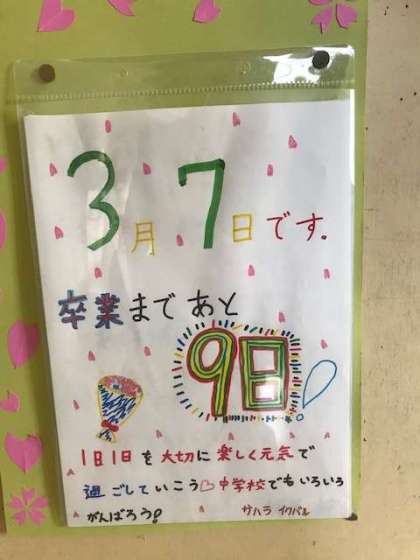 3月7日です.
卒業まであと
9日!
1日1日を大切に楽しく元気で
過ごしていこう♡中学校でもいろいろ
がんばろう!
サハラ イクバル